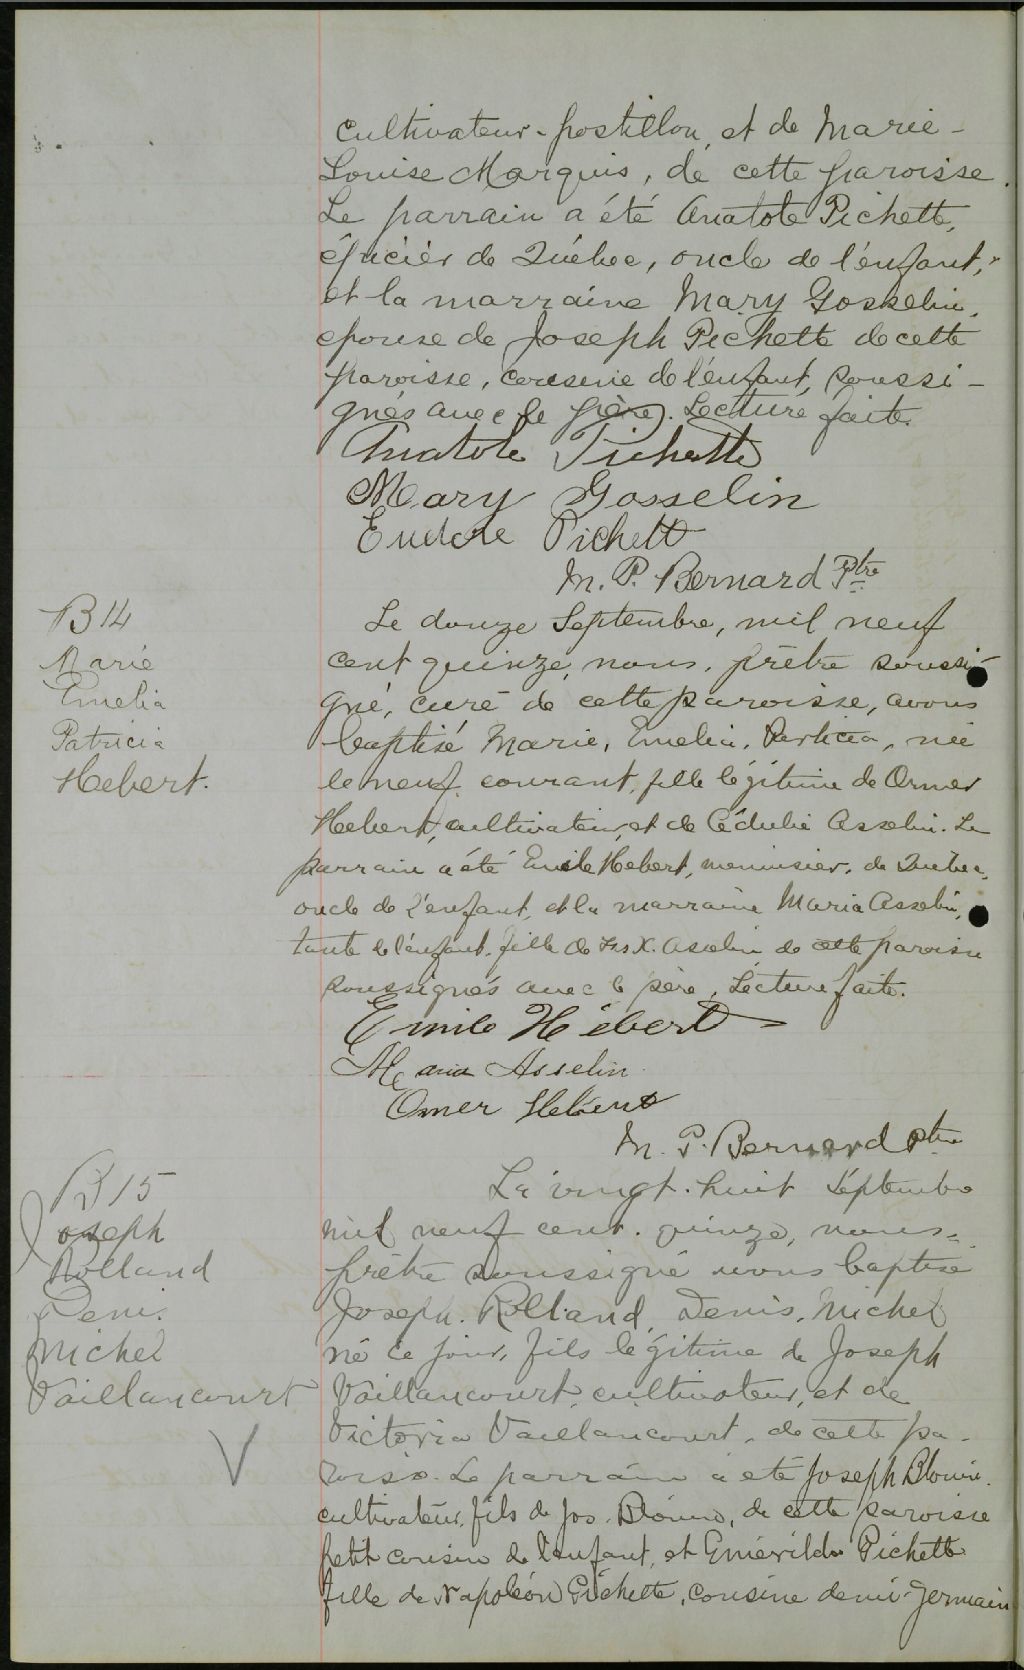 cultivateur-postillon, et de Marie-
Louise Marquis, de cette paroisse.
Le parrain a été Anatole Pichette,
épicier de Québec, oncle de l'enfant,
et la marraine Mary Gosselin,
epouse de Joseph Pichette de cette
paroisse, cousine de l'enfant, soussi-
gnés avec le père. Lecture faite.
Anatole Pichette
Mary Gosselin
Eudore Pichett
M. P. Bernard Ptre
B 14
Marie
Emelia
Patricia
Hebert.
Le douze Septembre, mil neuf
cent quinze, nous, prêtre soussi-
gné, curé de cette paroisse, avons
baptisé Marie, Emelia, née
le neuf courant, fille légitime de Omer
Hebert, cultivateur, et de Cédulie Asselin. Le
parrain a été Emile Hebert, menuisier, de Québec,
oncle de l'enfant, et la marraine Maria Asselin,
tante de l'enfant, fille de Frs X. Asselin de cette paroisse
soussignés avec le père, Lecture faite.
Emile Hébert
Maria Asselin
Omer Hébert
M. P. Bernard Ptre
B 15
Joseph
Rolland
Denis
Michel
Vaillancourt
V
Le vingt-huit Septembre
mil neuf cent quinze, nous
prêtre soussigné avons baptisé
Joseph, Rolland, Denis, Michel
né ce jour, fils légitime de Joseph
Vaillancourt, cultivateur, et de
Victoria Vaillancourt, de cette pa-
roisse. Le parrain a été Joseph Blouin
cultivateur, fils de Jos. Blouin, de cette paroisse
petit cousin de l'enfant, et Emérilda Pichette
fille de Napoléon Pichette, cousine demi-germain